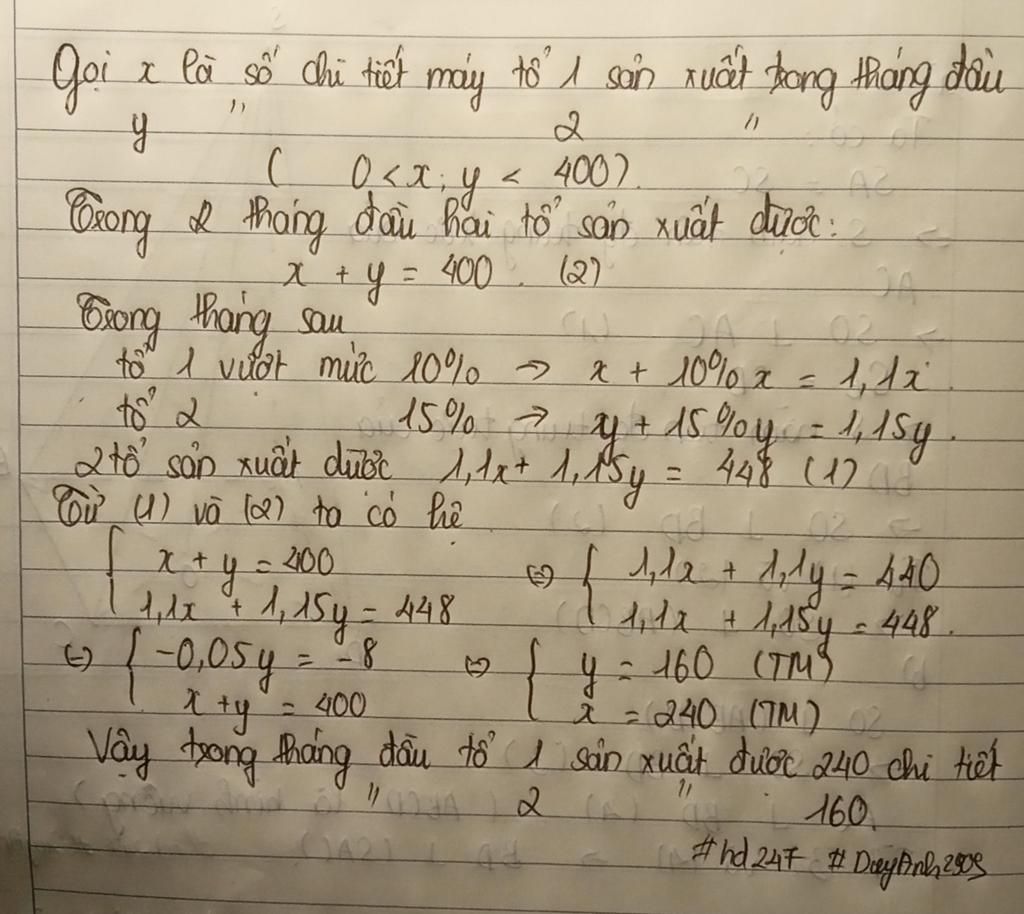 Gọi x là số chi tiết máy tổ 1 sản xuất trong tháng đầu
y " 2 "
( 0 < x; y < 400).
Trong 2 tháng đầu hai tổ sản xuất được:
x + y = 400. (2)
Trong tháng sau
tổ 1 vượt mức 10% → x + 10% x = 1,1x.
tổ 2 15% → y + 15%y = 1,15y.
2 tổ sản xuất được 1,1x + 1,15y = 448 (1)
Từ (1) và (2) ta có hệ
{ x + y = 400 ⇔ { 1,1x + 1,1y = 440
1,1x + 1,15y = 448 1,1x + 1,15y = 448.
⇔ { -0,05y = -8 ⇔ { y = 160 (TM)
x + y = 400 x = 240 (TM)
Vậy trong tháng đầu tổ 1 sản xuất được 240 chi tiết
" 2 " 160.
#hd247 #DuyAnh2909